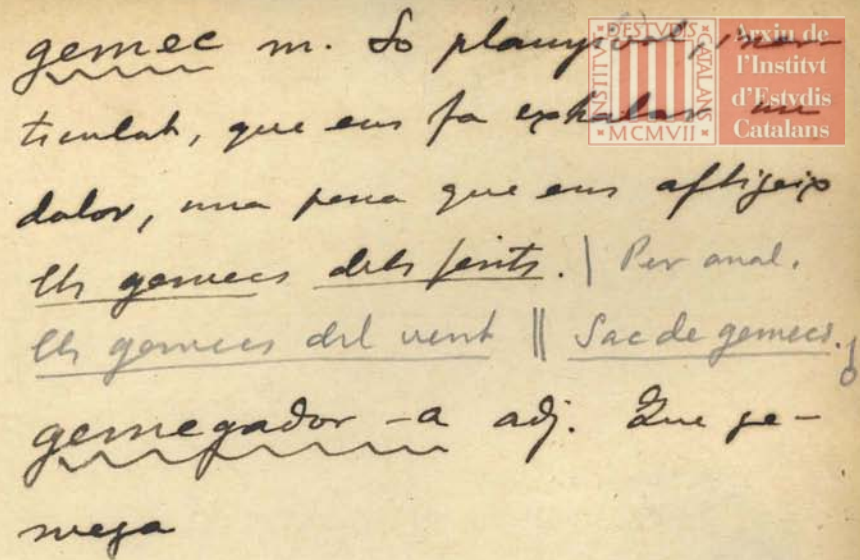 gemec m. So planyívol, inar-
ticulat, que ens fa exhalar un
dolor, una pena que ens afligeix
Els gemecs dels ferits. | Per anal.
Els gemecs del vent || Sac de gemecs.
gemegador -a adj. Que ge-
mega
INSTITVT D'ESTVDIS CATALANS
MCMVII
Arxiu de
l'Institvt
d'Estvdis
Catalans